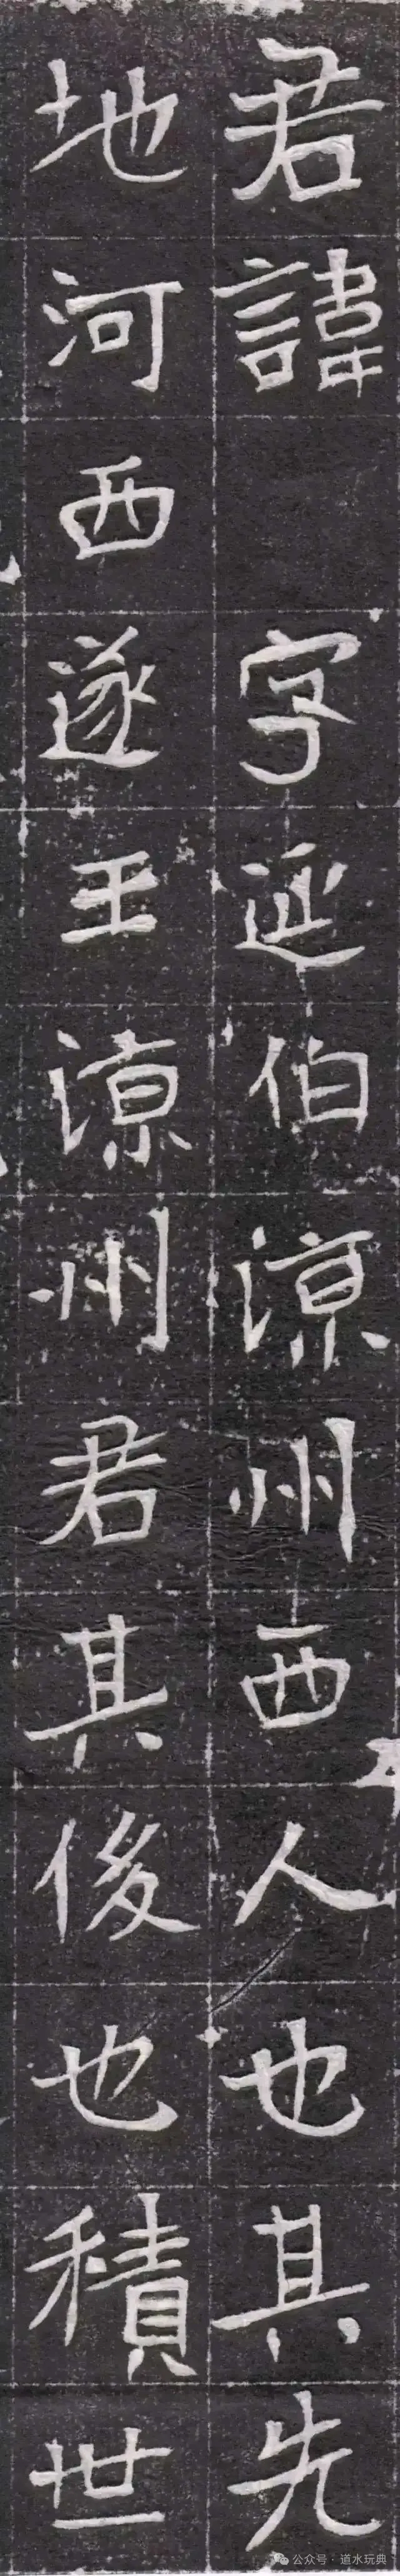 君諱 字延伯涼州西人也其先
地河西遂王涼州君其後也積世
公众号·道水玩典